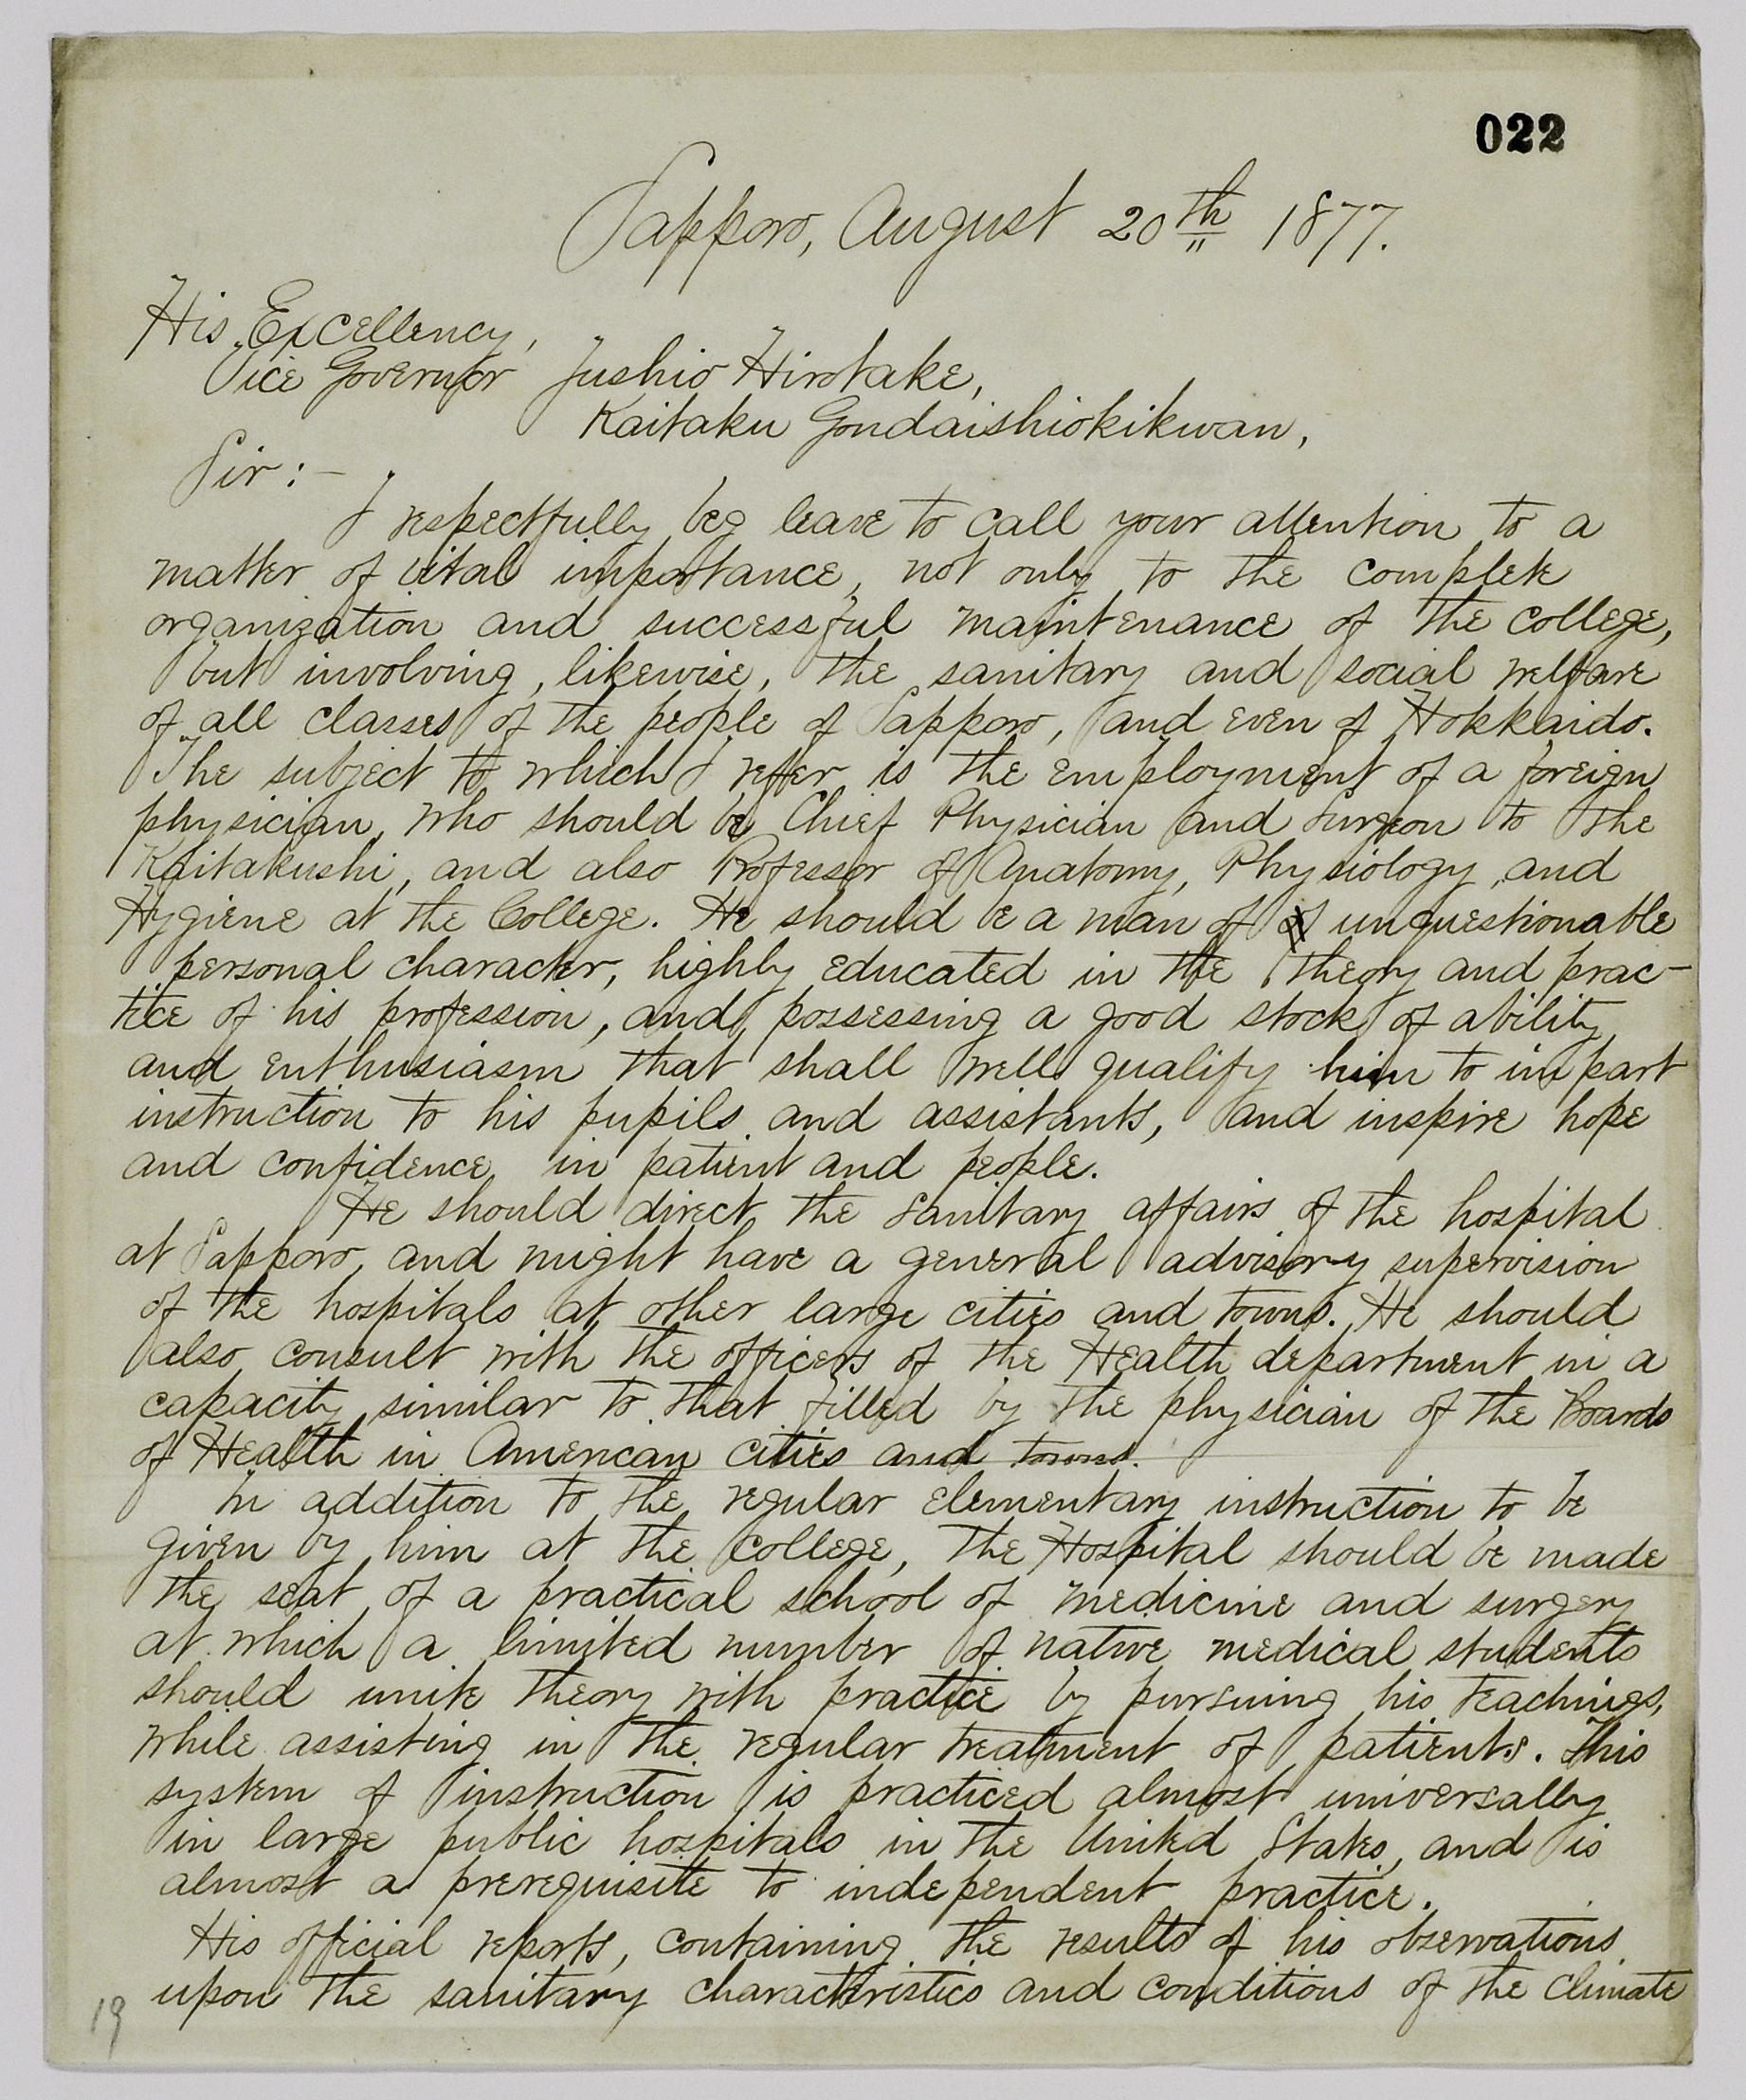 022
Sapporo, August 20th 1877.
His Excellency,
Vice Governor Jushio Hirotake,
Kaitaku Gondaishiokikwan,
Sir:-
I respectfully beg leave to call your attention to a
matter of vital importance, not only to the complete
organization and successful maintenance of the College,
but involving, likewise, the sanitary and social welfare
of all classes of the people of Sapporo, and even of Hokkaido.
The subject to which I refer is the employment of a foreign
physician, who should be Chief Physician and Surgeon to the
Kaitakushi, and also Professor of Anatomy, Physiology, and
Hygiene at the College. He should be a man of of unquestionable
personal character, highly educated in the theory and prac-
tice of his profession, and, possessing a good stock of ability
and enthusiasm that shall well qualify him to impart
instruction to his pupils and assistants, and inspire hope
and confidence in patient and people.
He should direct the sanitary affairs of the hospital
at Sapporo, and might have a general advisory supervision
of the hospitals at other large cities and towns. He should
also consult with the officers of the Health department in a
capacity similar to that filled by the physician of the Boards
of Health in American cities and towns.
In addition to the regular elementary instruction to be
given by him at the College, the Hospital should be made
the seat of a practical school of medicine and surgery
at which a limited number of native medical students
should unite theory with practice by pursuing his teachings,
while assisting in the regular treatment of patients. This
system of instruction is practiced almost universally
in large public hospitals in the United States, and is
almost a prerequisite to independent practice.
His official reports, containing the results of his observations
upon the sanitary characteristics and conditions of the climate
19